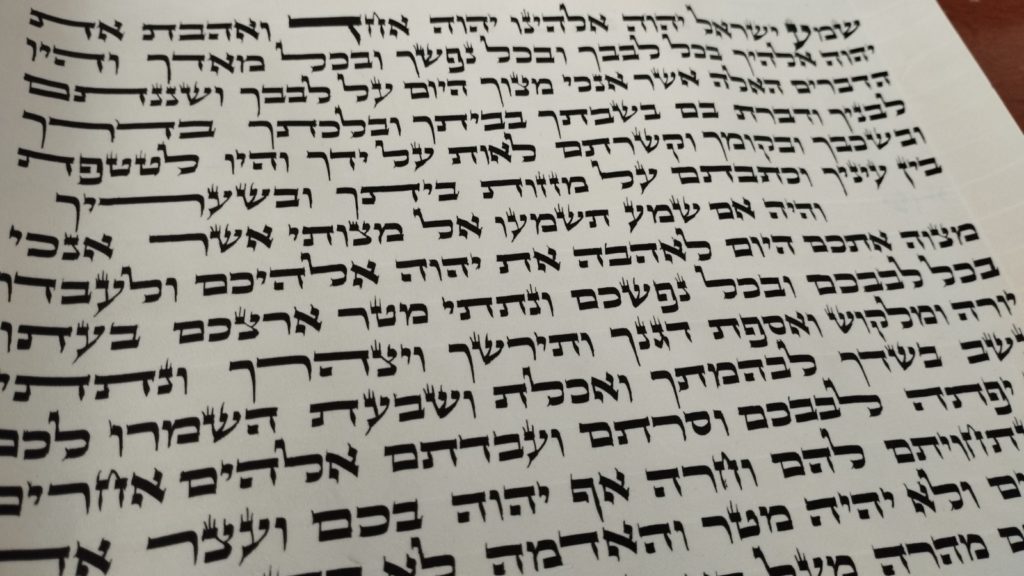 שמע ישראל יהוה אלהינו יהוה אחד ואהבת את
יהוה אלהיך בכל לבבך ובכל נפשך ובכל מאדך והיו
הדברים האלה אשר אנכי מצוך היום על לבבך ושננתם
לבניך ודברת בם בשבתך בביתך ובלכתך בדרך
ובשכבך ובקומך וקשרתם לאות על ידך והיו לטטפת
בין עיניך וכתבתם על מזזות ביתך ובשעריך
והיה אם שמע תשמעו אל מצותי אשר אנכי
מצוה אתכם היום לאהבה את יהוה אלהיכם ולעבדו
בכל לבבכם ובכל נפשכם ונתתי מטר ארצכם בעתו
יורה ומלקוש ואספת דגנך ותירשך ויצהרך ונתתי
שב בשדך לבהמתך ואכלת ושבעת השמרו לכם
יפתה לבבכם וסרתם ועבדתם אלהים אחרים
תחויתם להם וחרה אף יהוה בכם ועצר את
ים ולא יהיה מטר והאדמה לא
ם מהרה מעל